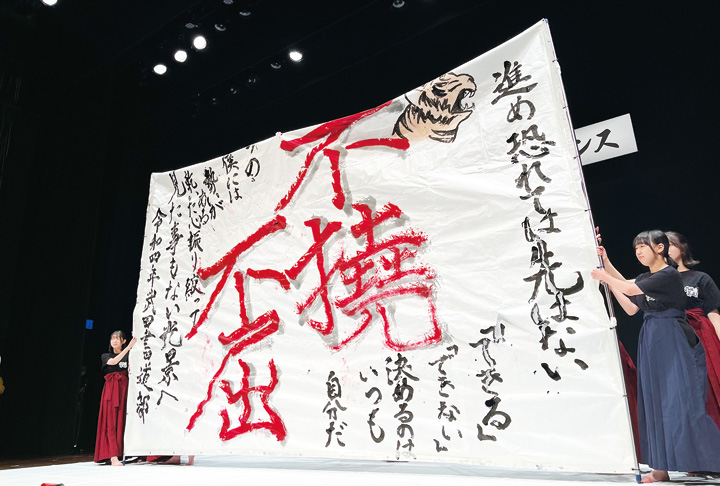 進め恐れては先はない
「できる」
「できない」
決めるのは
いつも
自分だ
不撓
不屈
の、
僕には
勢いが
ある
心振り絞って
見た事もない光景へ
令和四年武田書道部
ンス